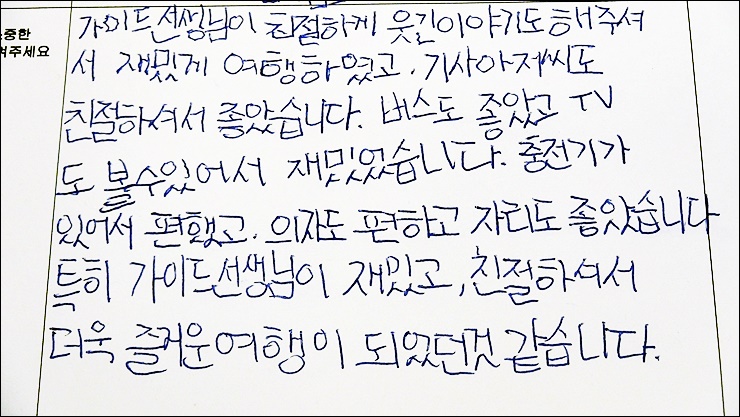 중한
겨주세요
가이드선생님이 친절하게 웃긴이야기도해주셔
서 재밌게 여행하였고, 기사아저씨도
친절하셔서 좋았습니다. 버스도 좋았고 TV
도 볼수있어서 재밌었습니다. 충전기가
있어서 편했고, 의자도 편하고 자리도 좋았습니다
특히 가이드선생님이 재밌고, 친절하셔서
더욱 즐거운여행이 되었던것 같습니다.